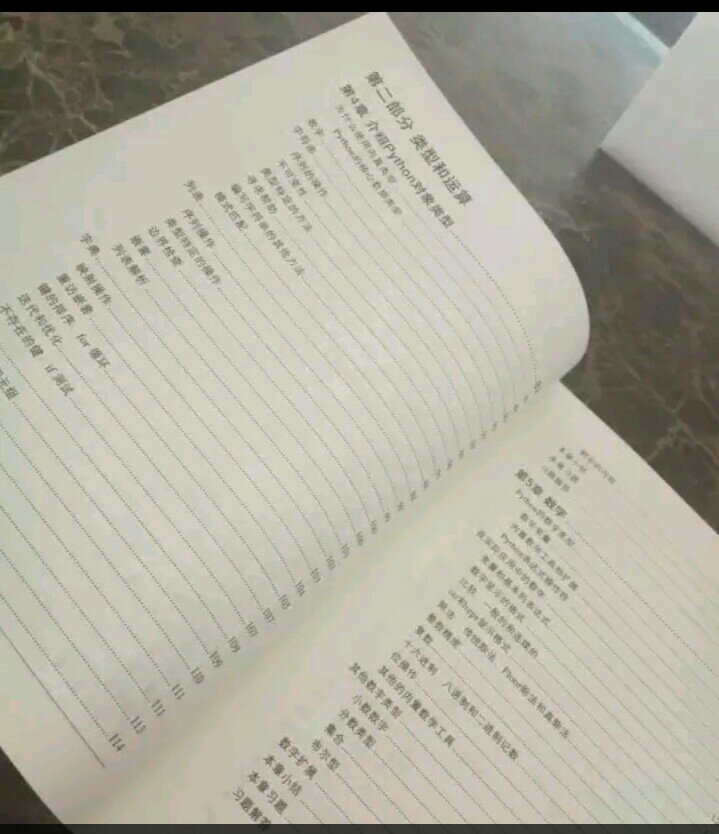 第二部分 类型和运算
第4章 介绍Python对象类型
为什么使用内置类型
Python的核心数据类型
数字
字符串
序列的操作
不可变性
类型特定的方法
寻求帮助
编写字符串的其他方法
模式匹配
列表
序列操作
类型特定的操作
边界检查
嵌套
列表解析
字典
映射操作
重访嵌套
键的排序 for 循环
迭代和优化
不存在的键 if 测试
元组
104
105
107
107
109
109
110
111
111
113
114
本章小结
本章习题
习题解答
第5章 数字
Python的数字类型
数字常量
内置数学工具和扩展
Python表达式操作符
在实际应用中的数字
变量和基本的表达式
数字显示的格式
比较 一般的和连续的
str和repr显示格式
除法 传统除法 Floor除法和真除法
整数精度
复数
十六进制 八进制和二进制记数
位操作
其他的内置数学工具
其他数字类型
小数数字
分数类型
集合
布尔型
数字扩展
本章小结
本章习题
习题解答